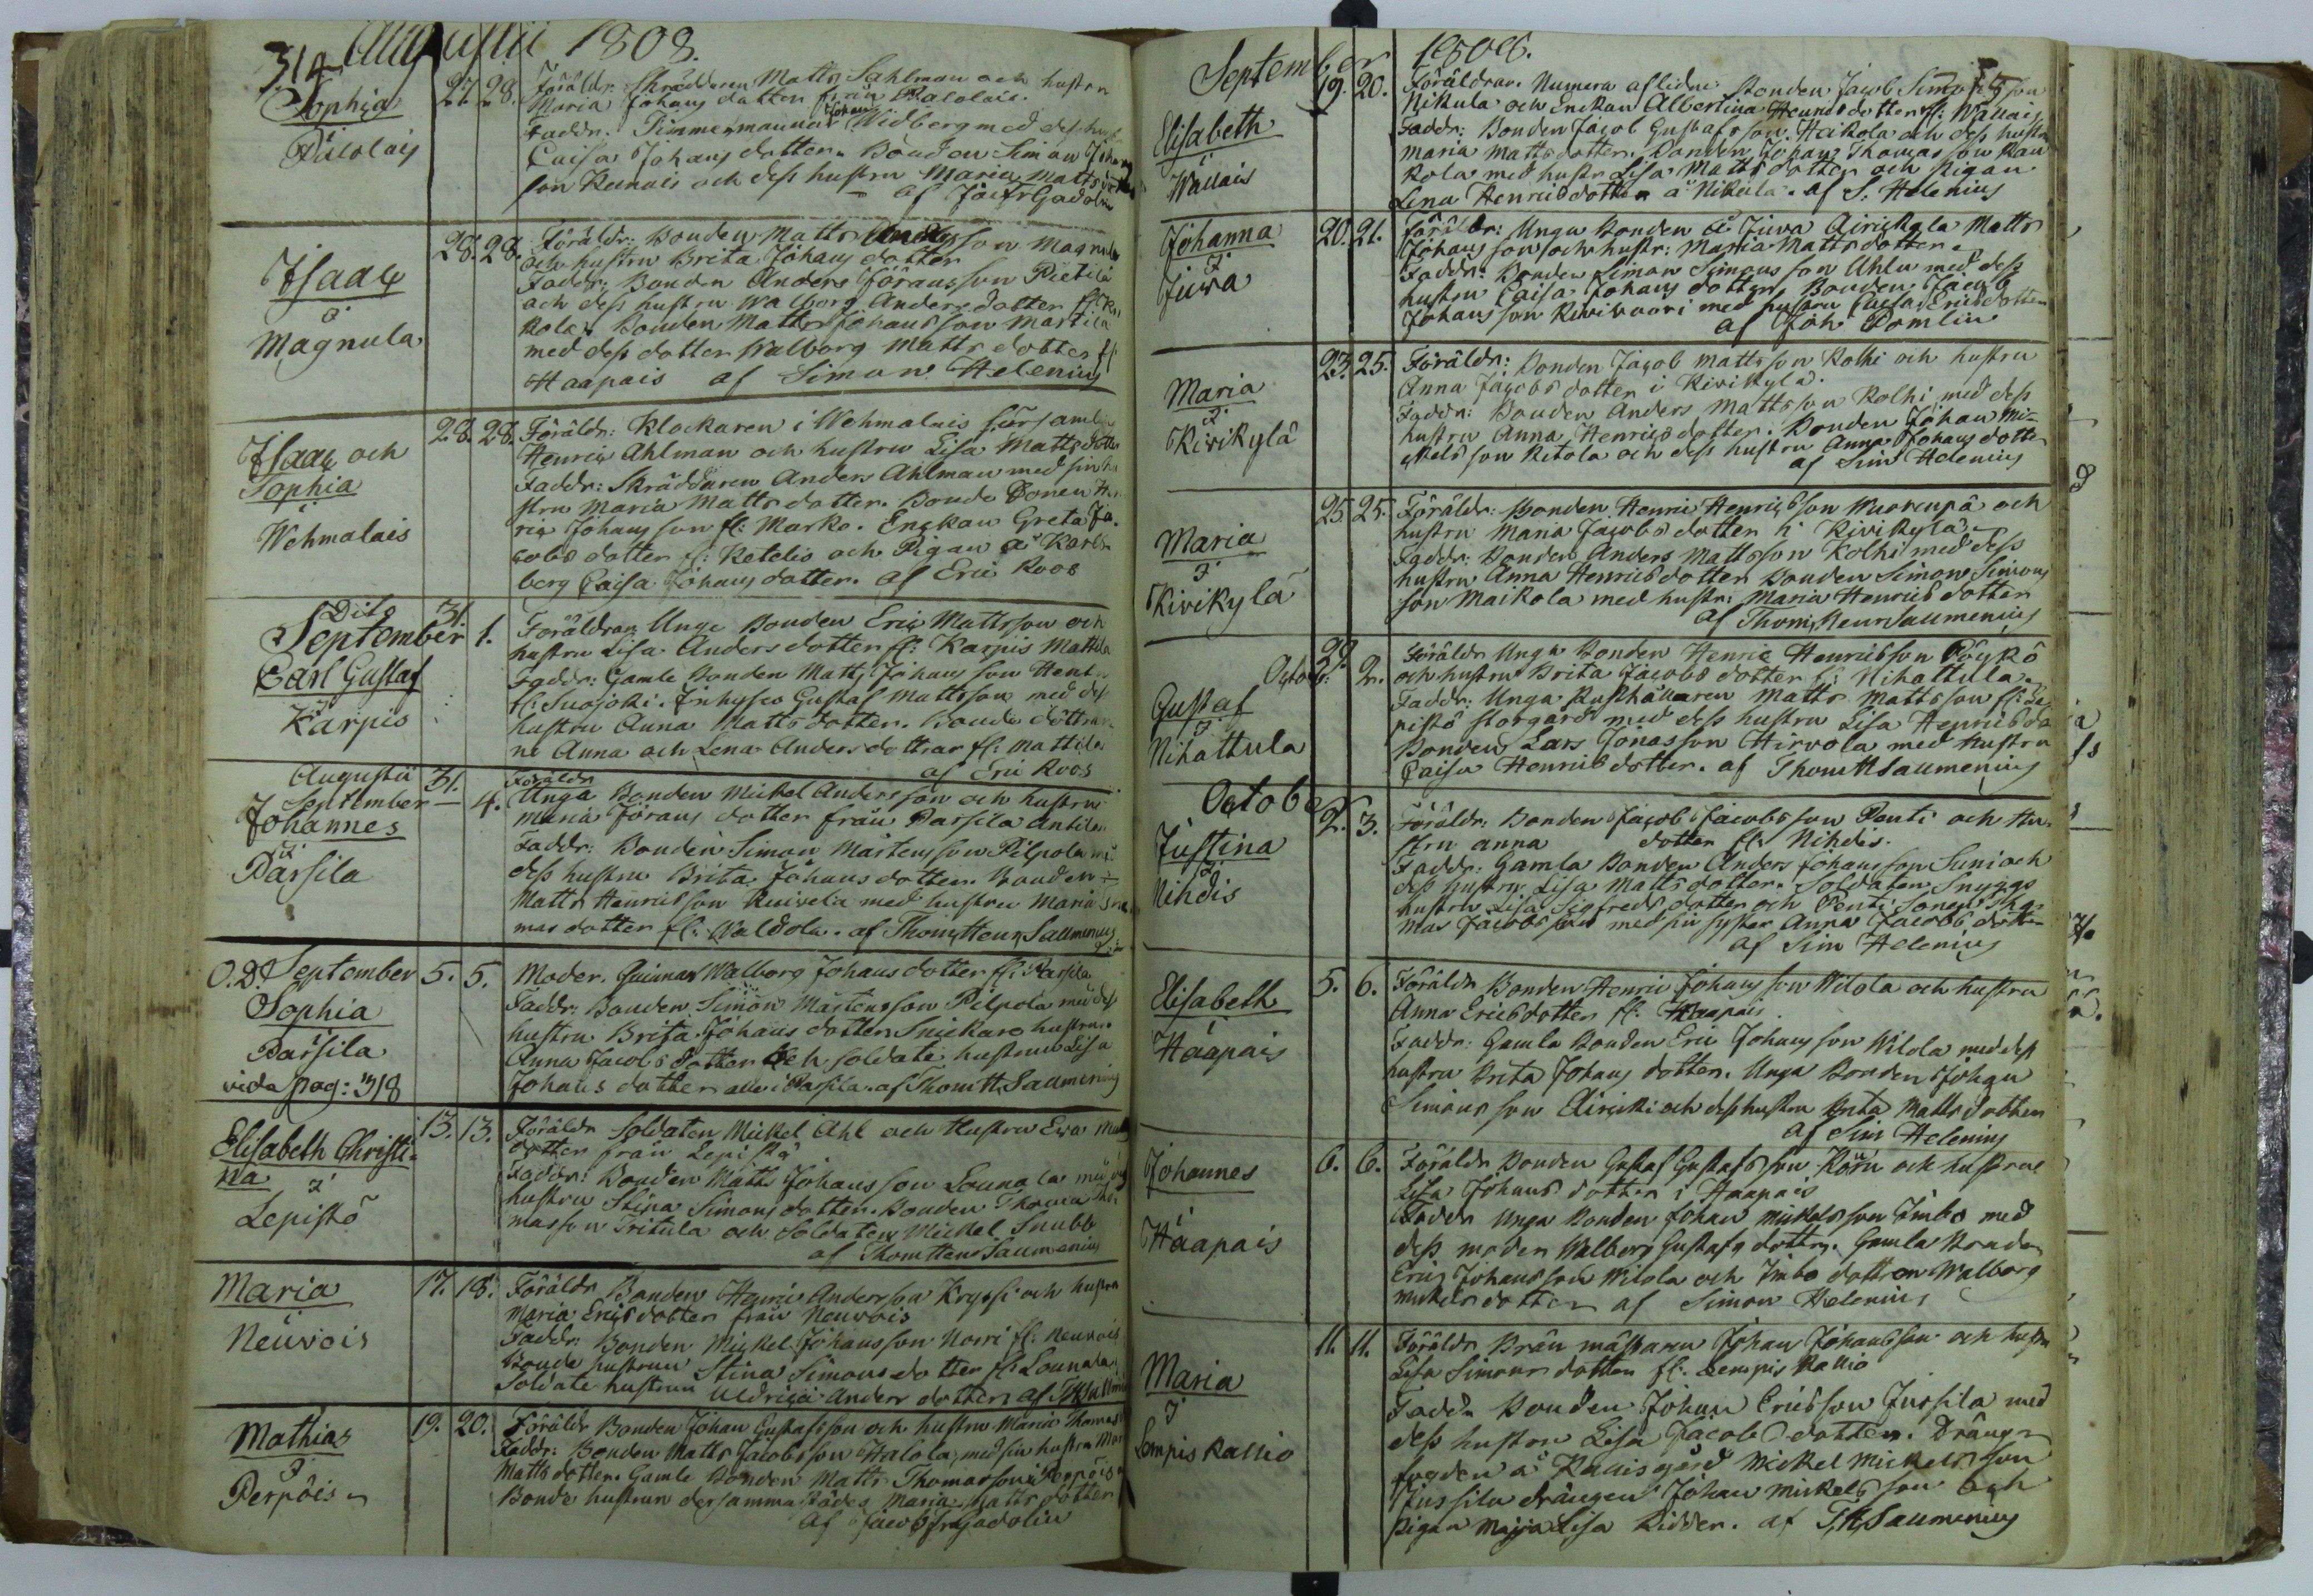 314 Augustii 1808.
Sophia
27. 28. Föräldr: Skräddaren Matts Sahlman och hustru
Maria Johans dotter från
Faddr. Timmermannen Johan Widberg med dess hust
Caisa Johans dotter. Bonden Simon Johans
son och dess hustru Maria Matts dotter
af Jac Fr Gadolin
Isaac
i
Magnula
28. 28. Föräldr: Bonden Matts son Magnula
och hustru Brita Johans dotter
Faddr: Bonden Anders Göransson Pietilä
och dess hustru Walborg Anders dotter fr:
kola. Bonden Matts Johansson Martila
med dess dotter Walborg Matts dotter fr
Haapais af Simon Helenius
Isaac och
Sophia
i
Wehmalais
28. 28. Föräldr: Klockaren i Wehmalais församling
Henric Ahlman och hustru Lisa Matts dotter
Faddr: Skräddaren Anders Ahlman med sin hu
stru Maria Matts dotter. Bonde Sonen Hen
ric Johans son fr: Marko. Enckan Greta Ja
cobs dotter fr: Ketelis och Pigan å Karls
berg Caisa Johans dotter. af Eric Roos
Dito 31.
September 1.
Carl Gustaf
i
Karpis
Föräldrar Unge Bonden Eric Mattsson och
hustru Lisa Anders dotter fr: Karpis Mattila
Faddr: Gamle Bonden Matts Johans son
fr: Suojoki. Inhyses Gustaf Mattsson med dess
hustru Anna Matts dotter. Bonde döttrar
ne Anna och Lena Anders dottrar fr: Mattila
af Eric Roos
Augustii 31.
September — 4.
Johannes
i
Pärsilä
Föräldr
Unga Bonden Mickel Andersson och hustru
Maria Görans dotter från Parsila Antila
Faddr: Bonden Simon Mårtensson Pilpola med
dess hustru Brita Johans dotter. Bonden
Matts Henricsson Kuivela med hustru Maria
mas dotter fr: Waldola. af Thom Henr Saumenius
O.Ä. September 5. 5.
Sophia
i
Parsila
vide pag: 318
Moder. Quinnan Walborg Johans dotter fr: Parsila
Faddr: Bonden Simon Mårtensson Pilpola med dess
hustru Brita Johans dotter Snickare hustrun
Anna Jacobs dotter och soldate hustrun Lisa
Johans dotter alla i Parsila. af Thom H. Saumenius
Elisabeth Christi=
na
i
Lepistö
13. 13. Föräldr Soldaten Mickel Ahl och Hustru Eva Matts
dotter från Lepistö
Faddr: Bonden Matts Johansson Lounala med dess
hustru Stina Simons dotter. Bonden Thomas Tho
masson Tritula och Soldaten Mickel Snubb
af Thom Henr Saumenius
Maria
i
Neuvois
17. 18. Föräldr Bonden Henric Andersson Kryssi och hustru
Maria Erics dotter från Neuvois
Faddr: Bonden Mickel Johansson Norri fr: Neuvois
Bonde hustrun Stina Simons dotter fr: Lounala
Soldate hustrun Ulrica Anders dotter af
Mathias
i
Perpöis
19. 20. Föräldr Bonden Johan Gustafsson och hustru Maria Thomas
Faddr: Bonden Matts Jacobsson Halola, med sin hustru
Matts dotter. Gamle Bonden Matts Thomasson i Perpöis
Bonde hustrun dersammastädes Maria Matts dotter
af Jacob Fr Gadolin
September 1808.
Elisabeth
i
Wallais
19. 20. Föräldrar. Numera afledne Bonden Jacob Simonsson
Nikula och Enckan Albertina Henrics dotter fr: Wallais
Faddr: Bonden Jacob Gustafsson Heikola och dess hustru
Maria Matts dotter. Bonden Johan Thomas son Kau
kola med hustr Lisa Matts dotter och Pigan
Lena Henrics dotter å Nikula. af S. Helenius
Johanna
i
Juva
20. 21. Föräldr: Unga Bonden å Juva Matts
Johansson och hustr: Maria Matts dotter.
Faddr: Bonden Simon Simonsson Uhlu med dess
hustru Caisa Johans dotter Bonden Jacob
Johansson Kivivuori med hustru Caisa Erics dotter
af Joh Pomlin
Maria
i
Kivikylä
23. 25. Föräldr: Bonden Jacob Mattsson Kolhi och hustru
Anna Jacobs dotter i Kivikylä.
Faddr: Bonden Anders Mattsson Kolhi med dess
hustru Anna Henrics dotter. Bonden Johan Mi=
ckels son Ketola och dess hustru Anna Johans dotter
af Sim Helenius
Maria
i
Kivikylä
25. 25. Föräldr: Bonden Henric Henricsson Wuorenpä och
hustru Maria Jacobs dotter i Kivikylä.
Faddr: Bonden Anders Mattsson Kolhi med dess
hustru Anna Henrics dotter Bonden Simon Simons
son Maikola med hustr: Maria Henrics dotter
af Thom Henr Saumenius
29.
October. 2.
Gustaf
i
Nihattula
Föräldr Unga Bonden Henric Henricsson Pöykö
och hustru Brita Jacobs dotter fr: Nihattula.
Faddr: Unga Rusthållaren Matts Mattsson fr: Le
pistö storgård med dess hustru Lisa Henrics do
Bonden Lars Jonasson Hirvola med hustru
Caisa Henrics dotter. af Thom H Saumenius
October
Justina
i
Nihdis
2. 3. Föräldr: Bonden Jacob Jacobs son Penti och Hu
stru Anna dotter fr: Nihdis.
Faddr: Gamla Bonden Anders Johansson Suni och
dess hustru Lisa Matts dotter. Soldaten Snyggs
hustru Lisa Sigfreds dotter och Penti Sonen Tho
mas Jacobsson med sin syster Anna Jacobs dotter
af Sim Helenius
Elisabeth
i
Haapais
5. 6. Föräldr Bonden Henric Johansson Wilola och hustru
Anna Erics dotter fr: Haapais.
Faddr: Gamla Bonden Eric Johansson Wilola med dess
hustru Brita Johans dotter. Unga Bonden Johan
Simons son Eiricki och dess hustru Brita Matts dotter
af Sim Helenius
Johannes
i
Haapais
6. 6. Föräldr Bonden Gustaf Gustafsson och hustrue
Lisa Johans dotter i Haapais
Faddr Unga Bonden Johan Mickelsson Imbo med
dess moder Walborg Gustafs dotter. Gamla Bonden
Eric Johansson Wilola och Imbo dottren Walborg
Mickels dotter af Simon Helenius
Maria
i
Sempis Kallio
11. 11. Föräldr Brän mästaren Johan Johansson och hustru
Lisa Simons dotter fr: Sempis Kallio
Faddr Bonden Johan Ericsson Jussila med
dess hustru Lisa Jacobs dotter. Drängn
fogden å Kallisgård Mickel Mickels son
Jussila drängen Johan Mickels son och
Pigan Majja Lisa Lidder. af T,H,Saumenius